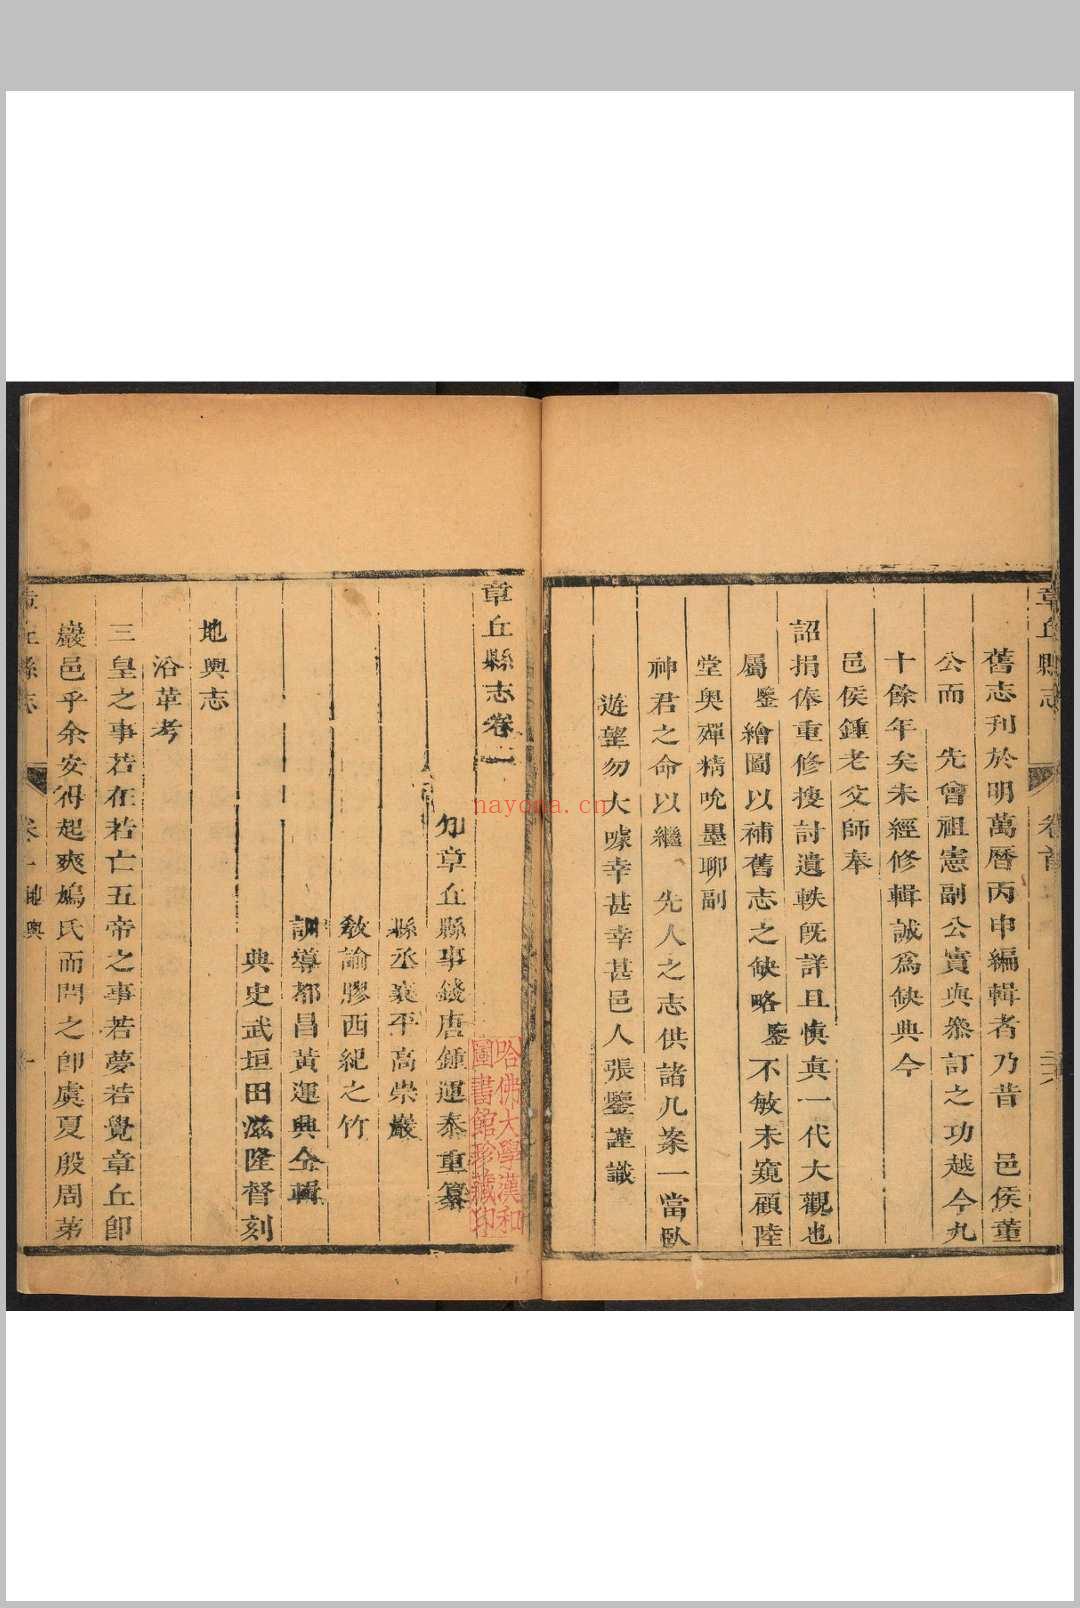 章丘縣志
卷首
二十六
舊志刊於明萬曆丙申編輯者乃昔　邑侯董
公而　先曾祖憲副公實與叅訂之功越今九
十餘年矣未經修輯誠爲缺典今
邑侯鍾老父師奉
詔捐俸重修搜討遺軼旣詳且慎眞一代大觀也
屬鑒繪圖以補舊志之缺略鑒不敏未窺顧陸
堂奥殫精吮墨聊副
神君之命以繼　先人之志供諸几案一當臥
遊望勿大噱幸甚幸甚邑人張鑒謹識
章丘縣志卷一
知章丘縣事錢唐鍾運泰重纂
縣丞襄平高崇巖
敎諭膠西紀之竹
訓導都昌黃運興仝輯
典史武垣田滋隆督刻
地輿志
沿革考
三皇之事若在若亡五帝之事若夢若覺章丘卽
巖邑乎余安得起爽鳩氏而問之卽虞夏殷周苐
章丘縣志
卷一地輿
一
哈佛大學漢和
圖書館珍藏印
hayona.cn